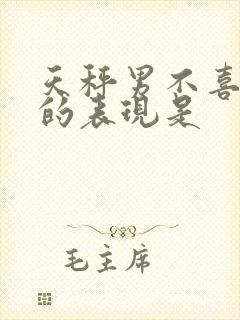 天秤男不喜
的表现是
毛主席